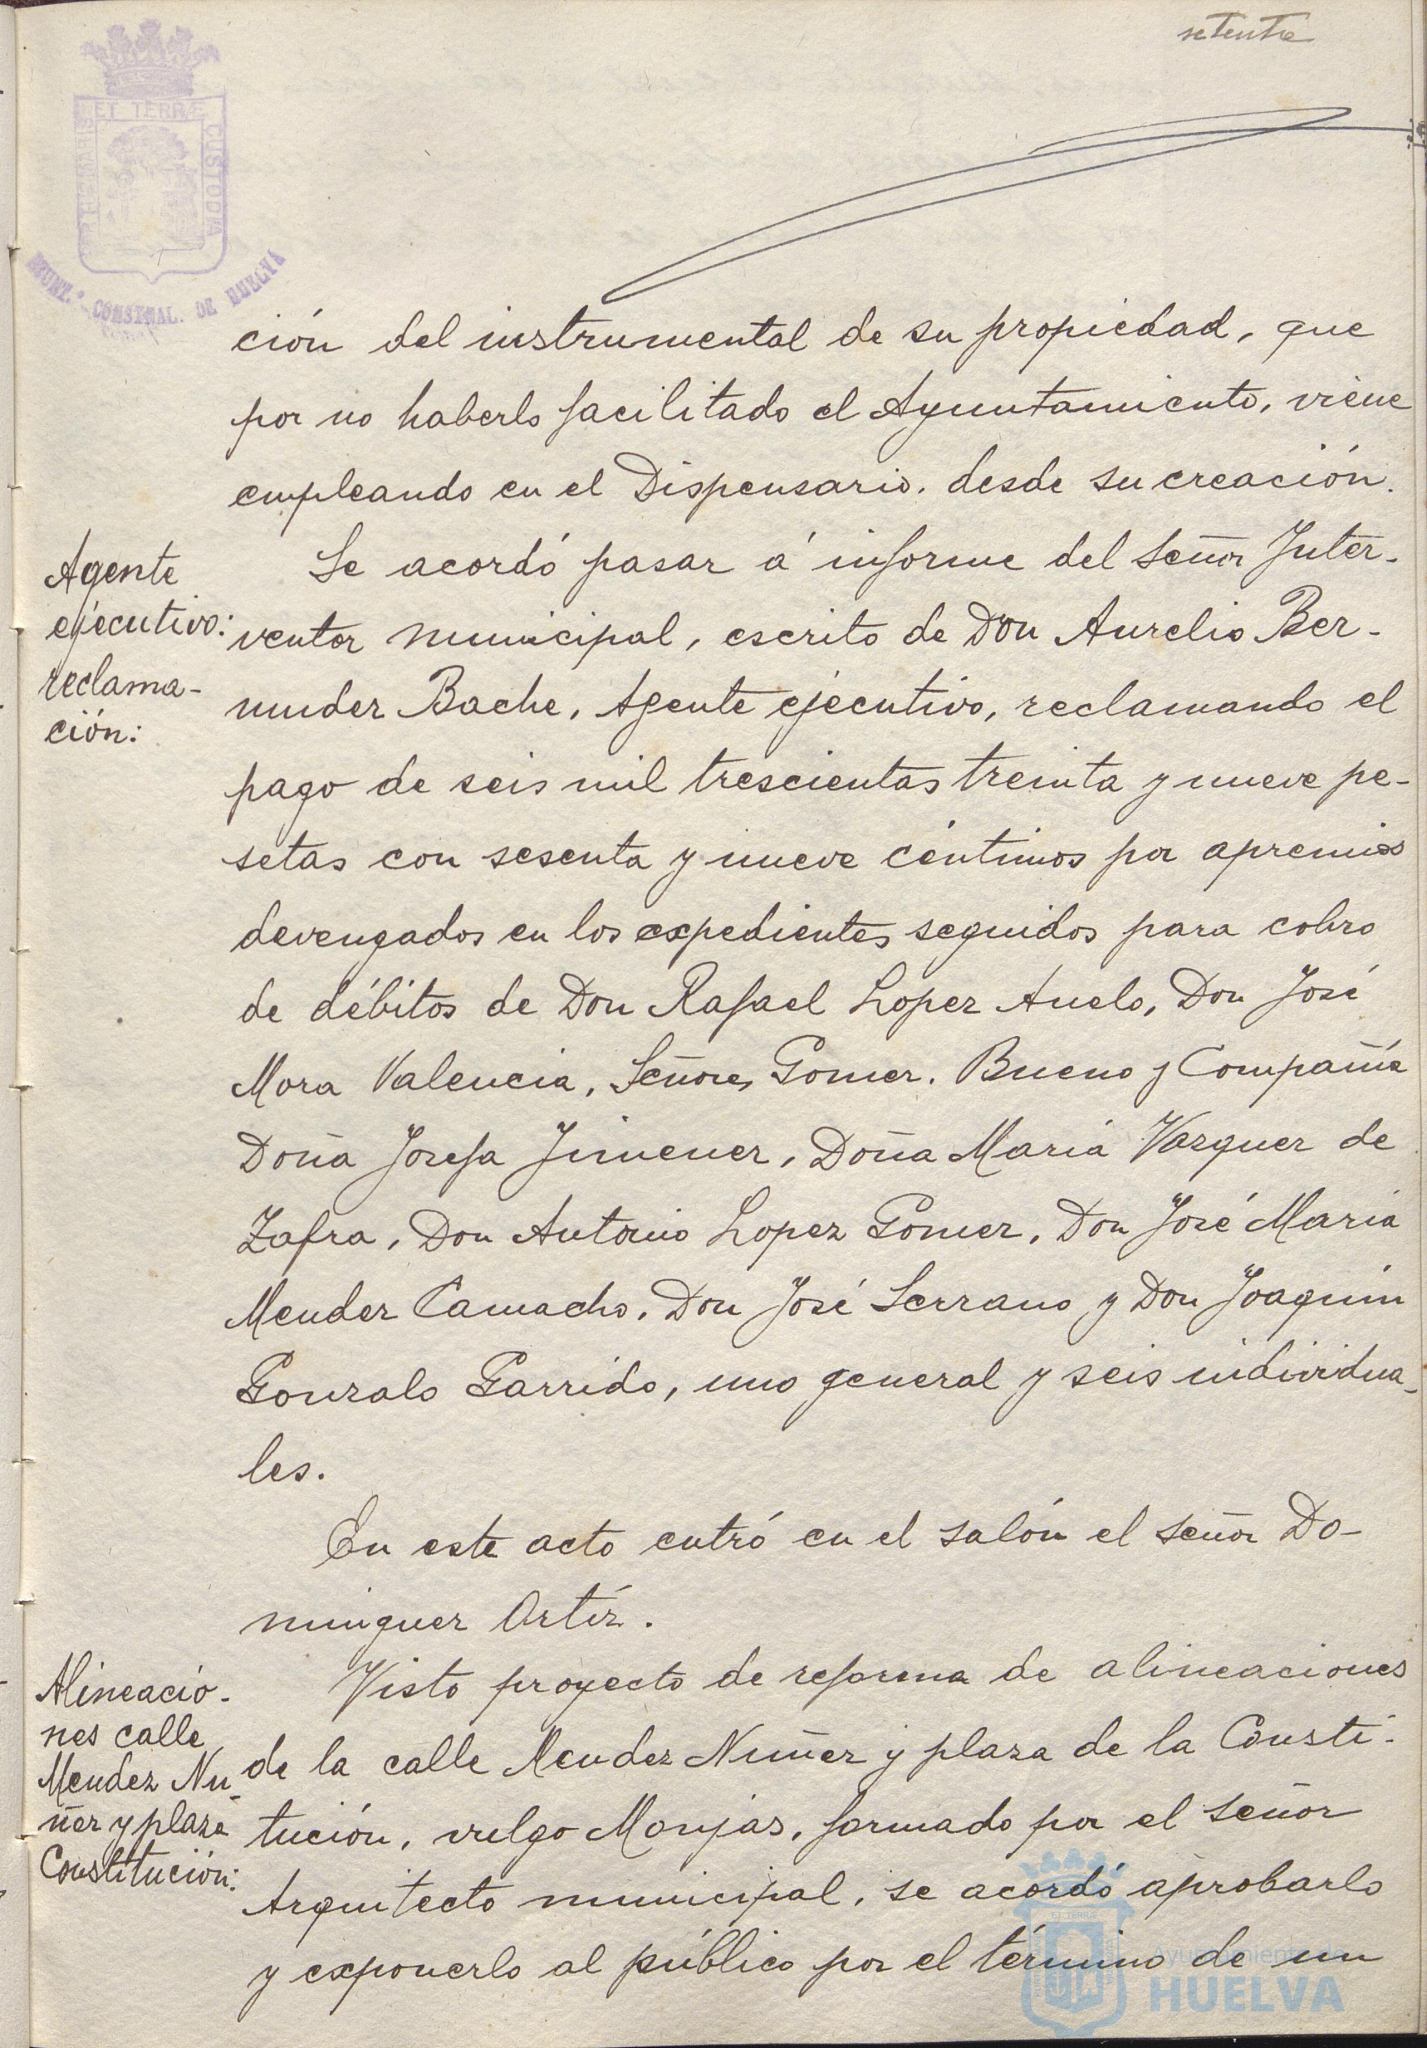 setenta
ET TERRÆ
CUSTODIA
AYUNT.º CONSTNAL. DE HUELVA
ción del instrumental de su propiedad, que
por no haberlo facilitado el Ayuntamiento, viene
empleando en el Dispensario, desde su creación.
Agente
ejecutivo:
reclama-
ción:
Se acordó pasar á informe del Señor Inter-
ventor municipal, escrito de Don Aurelio Ber-
mudez Bache, Agente ejecutivo, reclamando el
pago de seis mil trescientas treinta y nueve pe-
setas con sesenta y nueve céntimos por apremios
devengados en los expedientes seguidos para cobro
de débitos de Don Rafael Lopez Anelo, Don José
Mora Valencia, Señores Gomez, Bueno y Compañía
Doña Josefa Jimenez, Doña María Vazquez de
Zafra, Don Antonio Lopez Gomez, Don José María
Mendez Camacho, Don José Serrano y Don Joaquin
Gonzalo Garrido, uno general y seis individua-
les.
En este acto entró en el salón el señor Do-
minguez Ortíz.
Alineacio-
nes calle
Mendez Nu-
ñez y plaza
Constitución:
Visto proyecto de reforma de alineaciones
de la calle Mendez Nuñez y plaza de la Consti-
tución, vulgo Monjas, formado por el Señor
Arquitecto municipal, se acordó aprobarlo
y exponerlo al público por el término de un
Ayuntamiento de
HUELVA